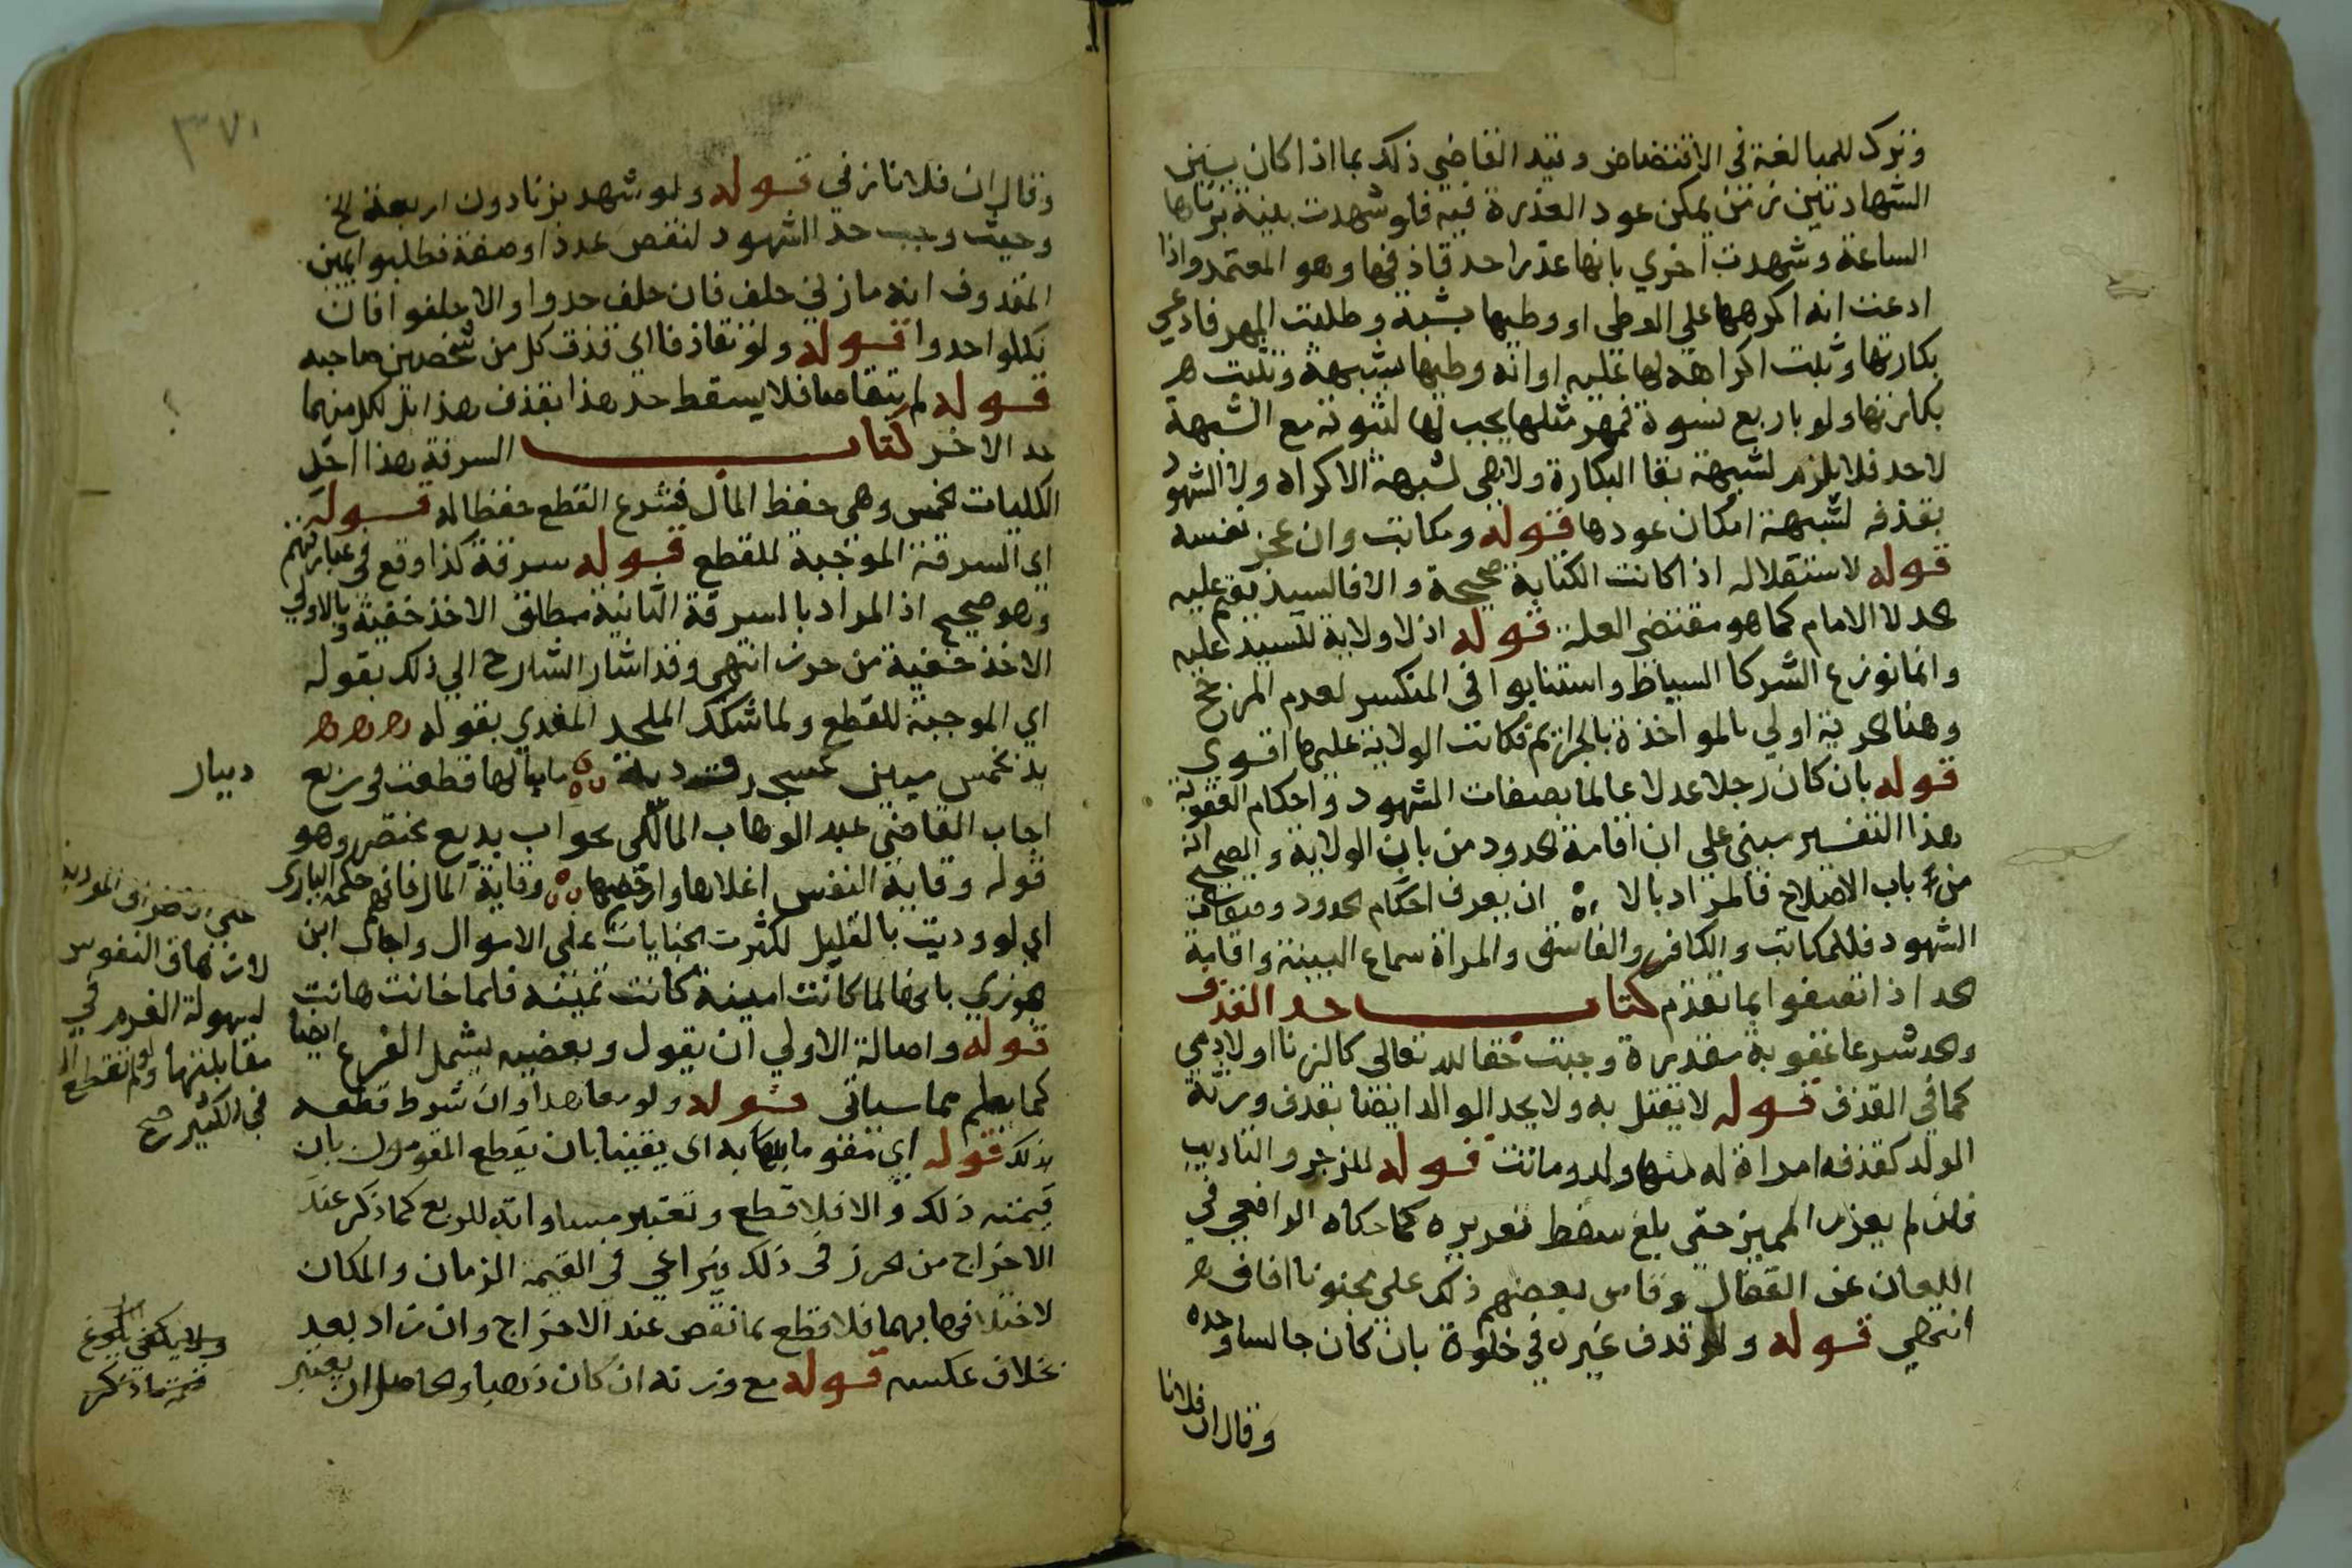 وترك للمبالغة في الافتضاض وقيد القاضي ذلك بما اذا كان بين
الشهادتين زمن يمكن عود العذرة فيه فلو شهدت بينة بزناها
الساعة وشهدت اخري بانها عذرا حد قاذفها وهو المعتمد واذا
ادعت انه اكرهها علي الوطي او وطيها بشبهة وطلبت المهر فادعي
بكارتها وثبت اكراهه لها عليه او انه وطيها بشبهة وثبت
بكارتها ولو باربع نسوة فمهر مثلها يجب لها لثبوته مع الشبهة
لا حد فلا يلزم لشبهة بقا البكارة ولا هي لشبهة الاكراه ولا الشهود
بقذفه لشبهة امكان عودها قوله ومكاتب وان عجز نفسه
قوله لاستقلاله اذا كانت الكتابة صحيحة والا فالسيد يقيم عليه
الحد لا الامام كما هو مقتضي العلة قوله اذ لا ولاية للسيد عليه
وانما توزع الشركا السياط واستنابوا في المنكسر لعدم المرجح
وهنا الحرية اولي بالمواخذة بالجرائم فكانت الولاية عليها اقوي
قوله بان كان رجلا عدلا عالما بصفات الشهود واحكام العقوبة
هذا التفسير مبني علي ان اقامة الحدود من باب الولاية والصحيح انه
من باب الاصلاح فالمراد بالا ان يعرف احكام الحدود وصفات
الشهود فللمكاتب والكافر والفاسق والمراة سماع البينة واقامة
الحد اذا اتصفوا بما تقدم كتاب حد القذف
والحد شرعا عقوبة مقدرة وجبت حقا لله تعالي كالزنا او لادمي
كما في القذف قوله لا يقتل به ولا يحد الوالد ايضا بقذف ورثة
الولد كقذفه امراة له منها ولد وماتت قوله للزجر والتاديب
فان لم يعزر المميز حتي بلغ سقط تعزيره كما حكاه الرافعي في
اللعان عن القفال وقاس بعضهم ذلك علي مجنونا افاق
انتهي قوله ولو قذف غيره في خلوة بان كان جالسا وحده
وقال ان فلانا
٣٧٠
وقال ان فلانا زني قوله ولو شهد بزنا دون اربعة الخ
وحيث وجب حد الشهود لنقص عدد او صفة فطلبوا يمين
المقذوف انه ما زني حلف فان حلف حدوا والا حلفوا فان
نكلوا حدوا قوله ولو تقاذفا اي قذف كل من شخصين صاحبه
قوله لم يتقاصا فلا يسقط حد هذا بقذف هذا بل لكل منهما
حد الاخر كتاب السرقة هذا احد
الكليات الخمس وهي حفظ المال فشرع القطع حفظا له قوله
اي السرقة الموجبة للقطع قوله سرقة كذا وقع في عبارتهم
وهو صحيح اذ المراد بالسرقة الثانية مطلق الاخذ خفية وبالاولي
الاخذ خفية من حرز انتهي وقد اشار الشارح الي ذلك بقوله
اي الموجبة للقطع ولما شكك الملحد المعري بقوله
يد بخمس ميين عسجد وديت ما بالها قطعت في ربع
دينار
اجاب القاضي عبد الوهاب المالكي بجواب بديع مختصر وهو
قوله وقاية النفس اغلاها وارخصها وقاية المال فافهم حكمة الباري
اي لو وديت بالقليل لكثرت الجنايات علي الاموال واجاب ابن
الجوزي بانها لما كانت امينة كانت ثمينة فلما خانت هانت
قوله واصالة الاولي ان يقول وبعضيه ليشمل الفرع ايضا
كما يعلم مما سياتي قوله ولو معاهدا وان شرط قطعه
بذلك قوله اي مقوما بها به اي يقينا بان يقطع المقومون بان
قيمته ذلك والا فلا قطع وتعتبر مساواته للربع كما ذكر عند
الاخراج من الحرز في ذلك ويراعي في القيمة الزمان والمكان
لاختلافها بهما فلا قطع بما نقص عند الاخراج وان زاد بعد
بخلاف عكسه قوله مع وزنه ان كان ذهبا والحاصل ان يعتبر
لسهولة الغرم في
مقابلتها ولو لم تقطع الا
في الكثير صح